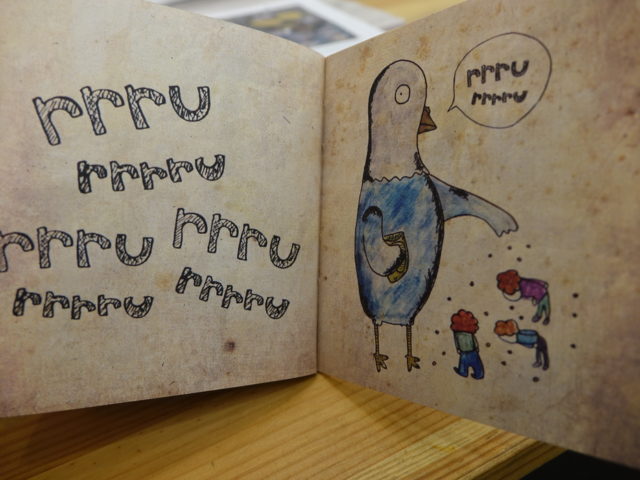 rrru
rrrru
rrru rrru
rrrru rrrru
rrru
rrrru